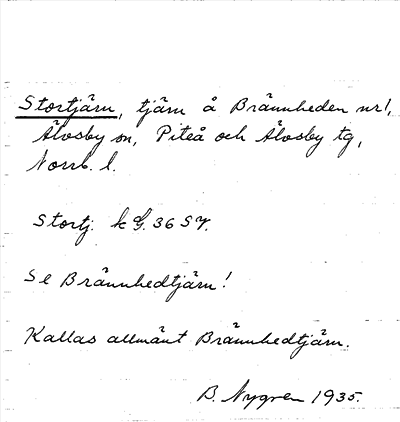 Stortjärn, tjärn å Brännheden nr 1,
Älvsby sn, Piteå och Älvsby tg,
Norrb. l.
Stortj. k G. 36 SV.
Se Brännhedtjärn!
Kallas allmänt Brännhedtjärn.
B. Nygren 1935.